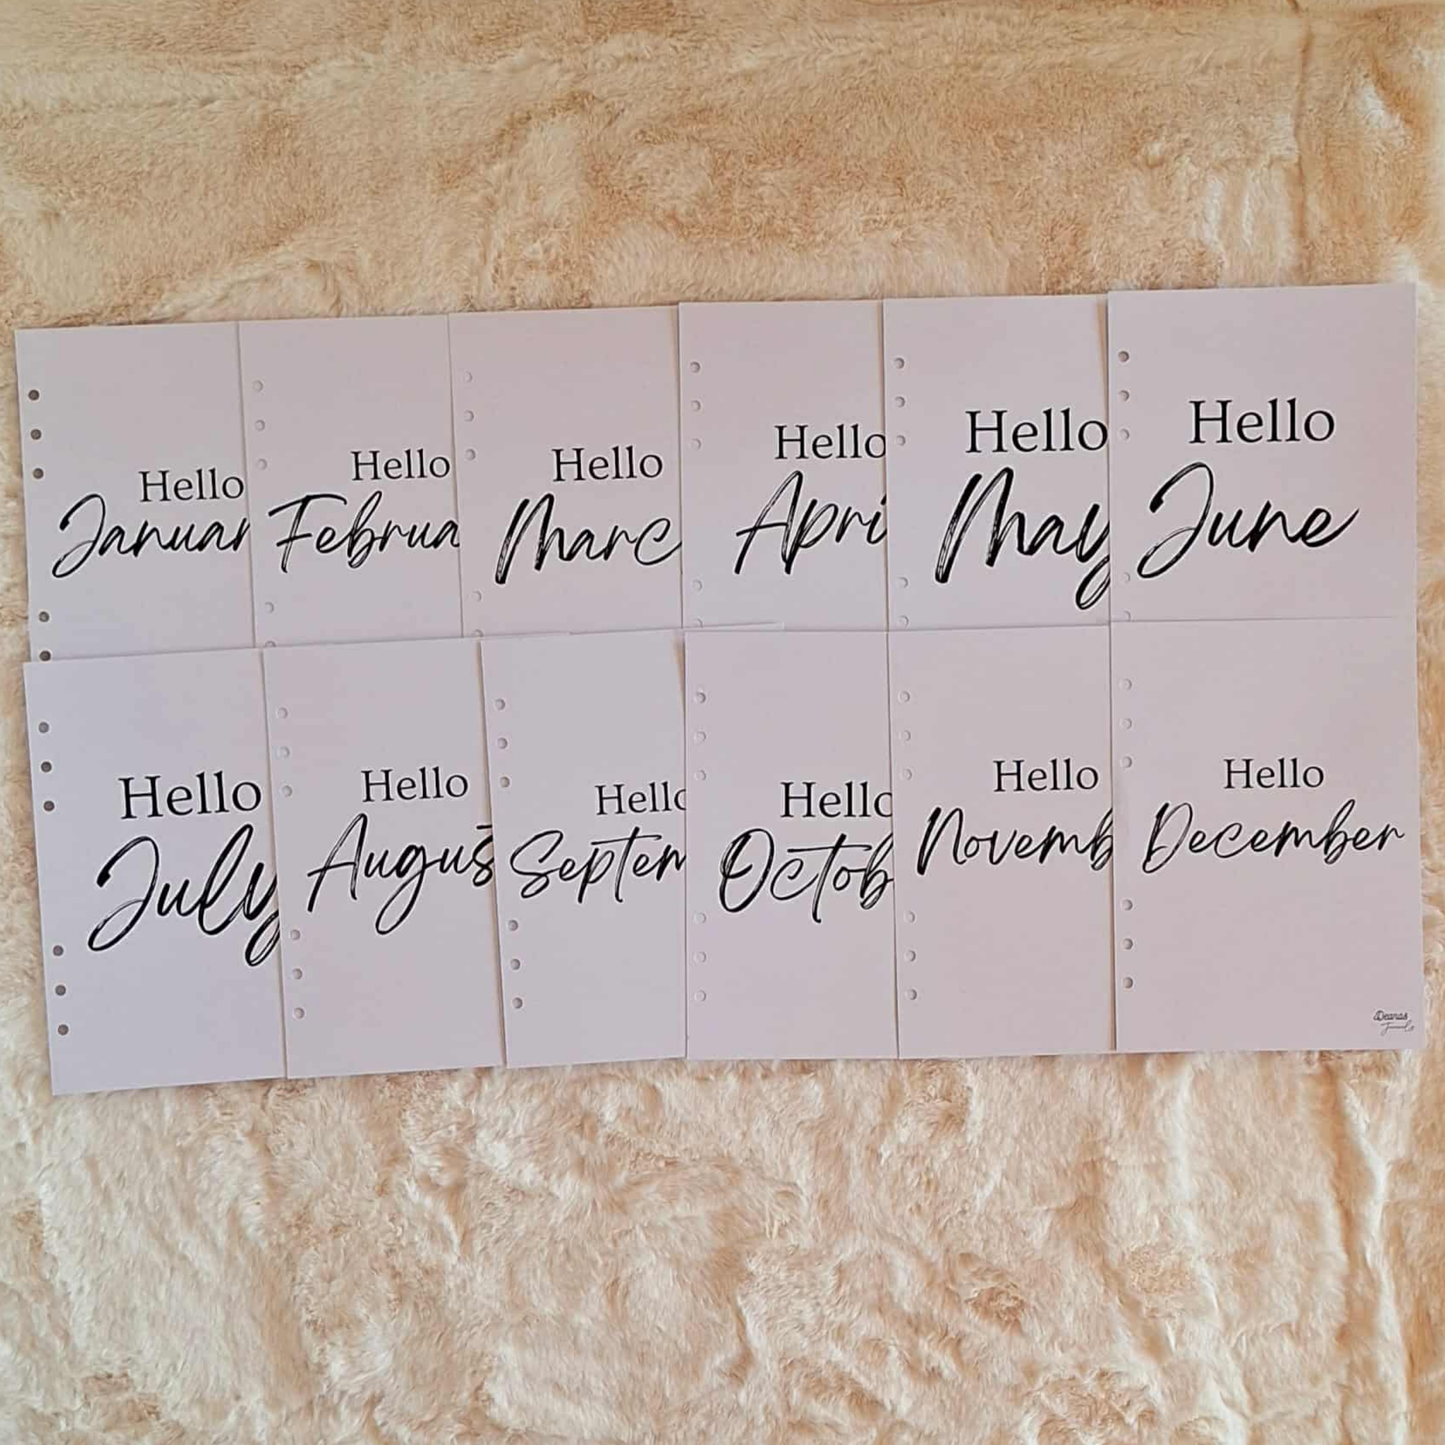 Hello
Januar
Hello
Februa
Hello
Marc
Hello
Apri
Hello
May
Hello
June
Hello
July
Hello
Augus
Hello
Septem
Hello
Octob
Hello
Novemb
Hello
December
Deanas
Journals